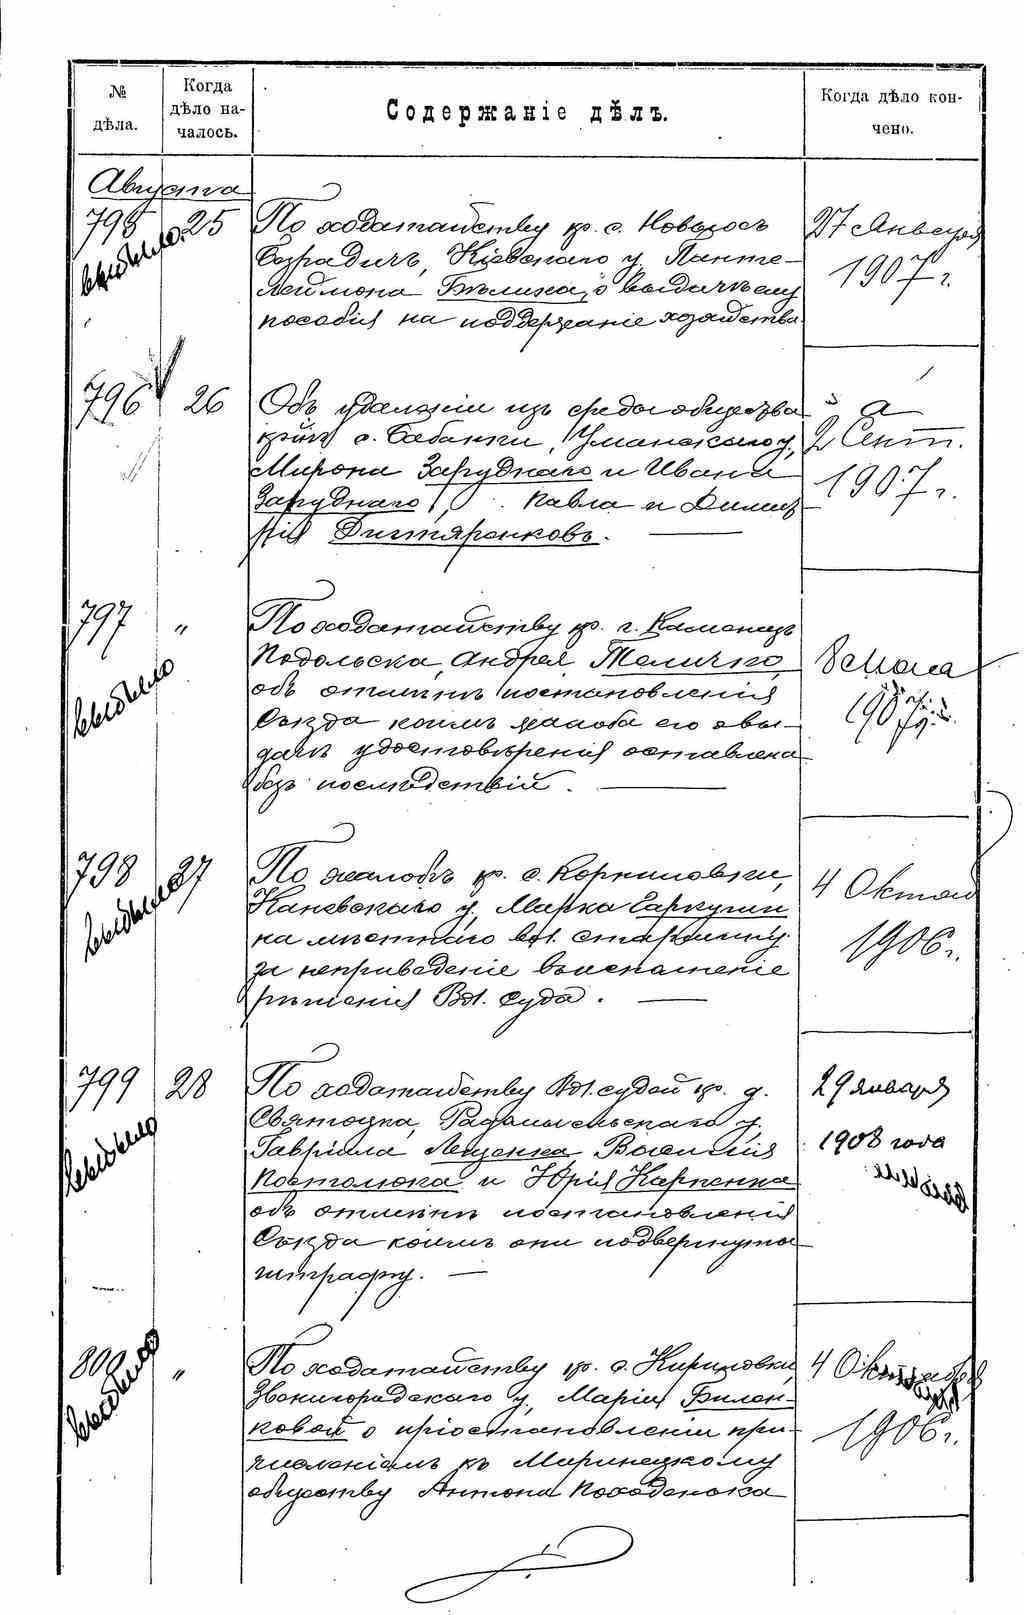 № дѣла.
Когда дѣло началось.
Содержаніе дѣлъ.
Когда дѣло кончено.
Августа
795 25 По ходатайству кр. с. Новыхъ
Безрадичъ, Кіевскаго у. Панте-
леймона Бѣлика, о выдачѣ ему
пособія на поддержаніе хозяйства
27 Января
1907 г.
выбыло
796 26 Объ удаленіи изъ среды общества
с. Бабанки, Уманскаго у,
Мирона Заруднаго и Ивана
Заруднаго, Павла и Димит
рія Дихтяренковъ.
2 Сент.
1907 г.
797 " По ходатайству кр. г. Каменецъ
Подольска, Андрея Теличко,
объ отмѣнѣ постановленія
Съѣзда коимъ жалоба его о вы-
дачѣ удостовѣренія оставлена
безъ послѣдствій.
8 Мая
1907 г.
выбыло
798 27 По жалобѣ кр. с. Корниловки,
Каневскаго у, Марка Гаркуши
на мѣстнаго вол. старшину
за неприведеніе въ исполненіе
рѣшенія Вол. Суда.
4 Октяб
1906 г.
выбыло
799 28 По ходатайству Вол. судей кр. д.
Радомысльскаго у.
Гавріила Лещенка, Василія
Костюлюка и Юрія Карпенка
объ отмѣнѣ постановленія
Съѣзда коимъ они подвергнуты
штрафу.
29 января
1908 года
выбыло
800 " По ходатайству кр. с. Кириловки,
Звенигородскаго у, Маріи Билен-
ковой о пріостановленіи при-
численіемъ къ Моринецкому
обществу Антона Походенока
4 Октября
1906 г.
выбыло